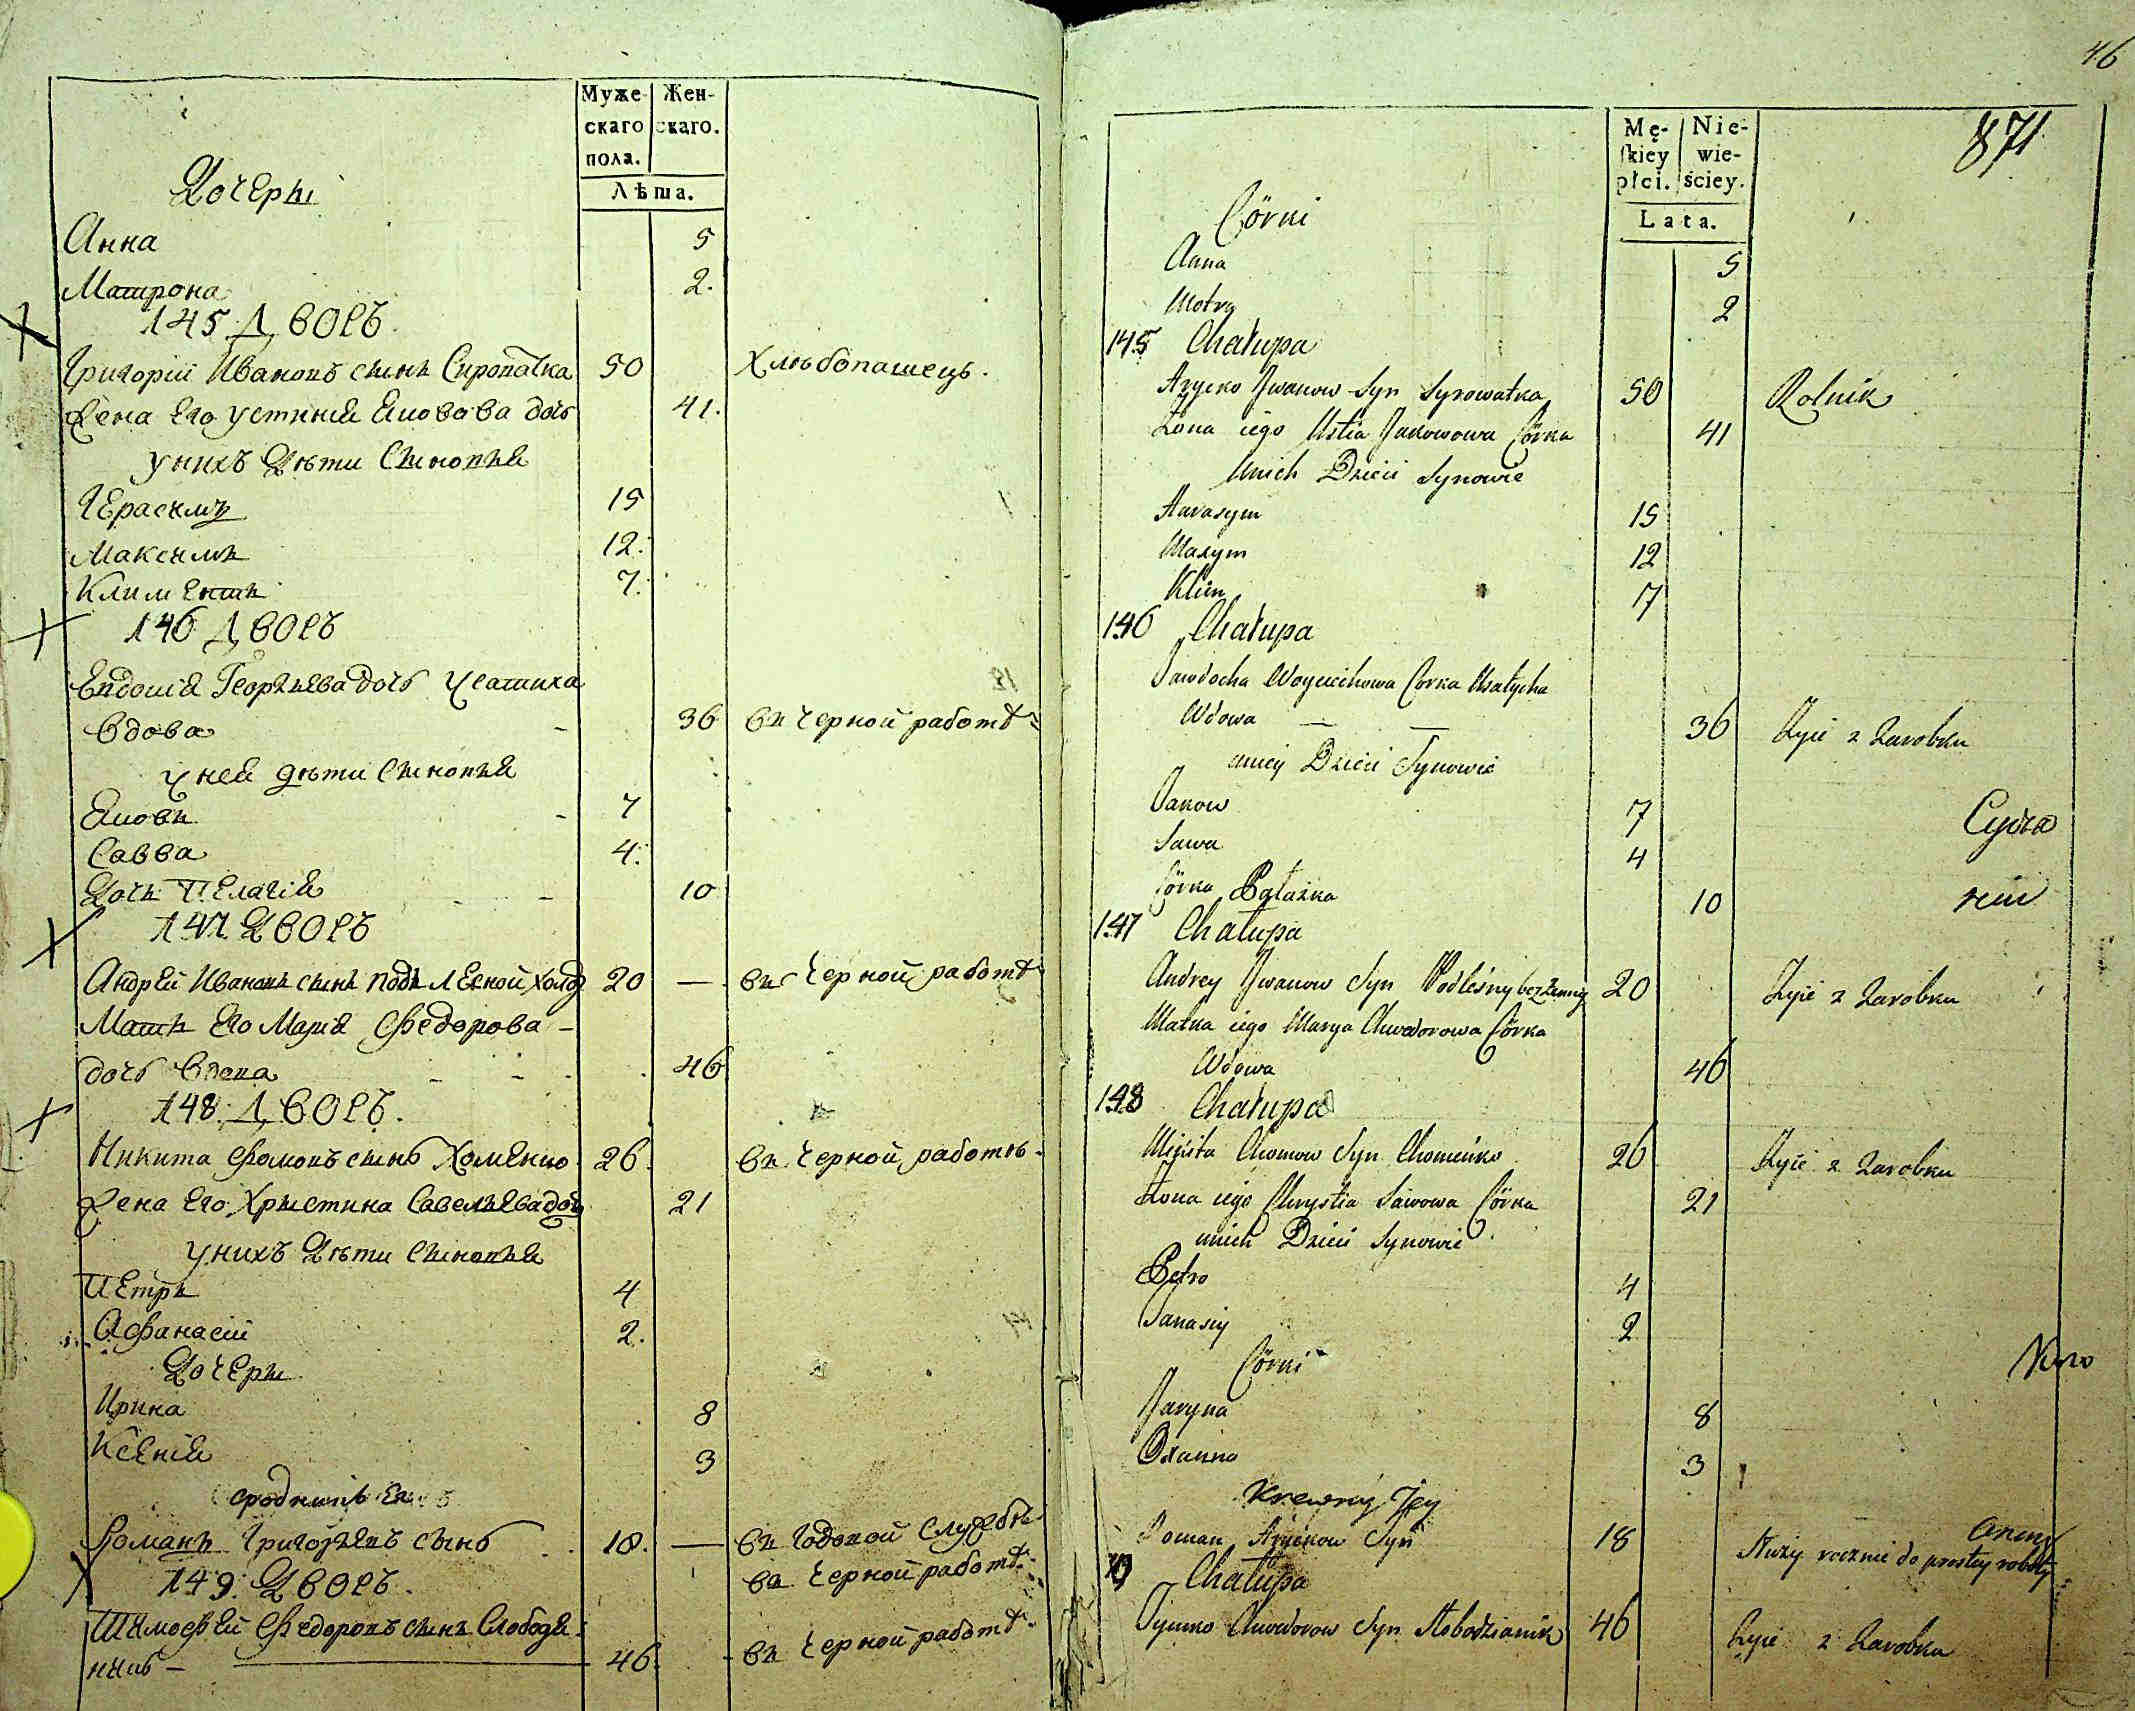 Муже-
скаго
пола.
Жен-
скаго.
Лѣта.
Дочери
Анна 5
Матрона 2.
145 Дворъ.
Григорій Ивановъ сынъ Сироватка 50 Хлѣбопашецъ.
Жена Его Устинія Яковова дочь 41.
У нихъ Дѣти Сыновья
Герасимъ 15
Максимъ 12.
Климентъ 7.
146 Дворъ
Евдокія Георгіева дочь Усатиха
Вдова 36 въ черной работѣ
У ней дѣти Сыновья
Яковъ 7
Савва 4.
Дочь Пелагія 10
147 Дворъ
Андрей Ивановъ сынъ Подлесной холос 20 — въ черной работѣ
Мать Его Марія Федорова —
дочь Вдова 46
148. Дворъ.
Никита Фомовъ сынъ Хоменко 26. въ черной работѣ.
Жена Его Христина Савельева дочь 21
У нихъ Дѣти Сыновья
Петръ 4
Афанасій 2.
Дочери
Ирина 8
Ксенія 3
сродникъ
Романъ Григорьевъ сынъ 18. — въ годовой службѣ
въ черной работѣ.
149. Дворъ.
Тимофей Федоровъ сынъ Слободя-
никъ — 46. въ черной работѣ.
46
871
Mę-
skiey
płci.
Nie-
wie-
ściey.
Lata.
Córki
Anna 5
Motra 2
145 Chałupa
Hryćko Jwanow Syn Syrowatka 50 Rolnik
Żona iego Ustia Jakowowa Córka 41
unich Dzieci Synowie
Harasym 15
Maxym 12
Klim 7
146 Chałupa
Jawdocha Woyciechowa Córka Usatycha
Wdowa — — 36 Żyie z Zarobku
uniey Dzieci Synowie
Jakow 7
Sawa 4
Córka Pałażka 10
147 Chałupa
Andrey Jwanow Syn Podleśny bezżenny 20 Żyie z Zarobku
Matka iego Marya Chwedorowa Córka
Wdowa 46
148 Chałupa
Mikita Chomow Syn Chomeńko 26 Żyie z Zarobku
Żona iego Chrystia Sawowa Córka 21
unich Dzieci Synowie
Petro 4
Panasiy 2
Córki
Jaryna 8
Oxanna 3
Krewny Jey
Roman Hryćkow Syn 18 Służy rocznie do prostey roboty
Chałupa
Tymko Chwedorow Syn Słobodzianik 46 Żyie z Zarobku